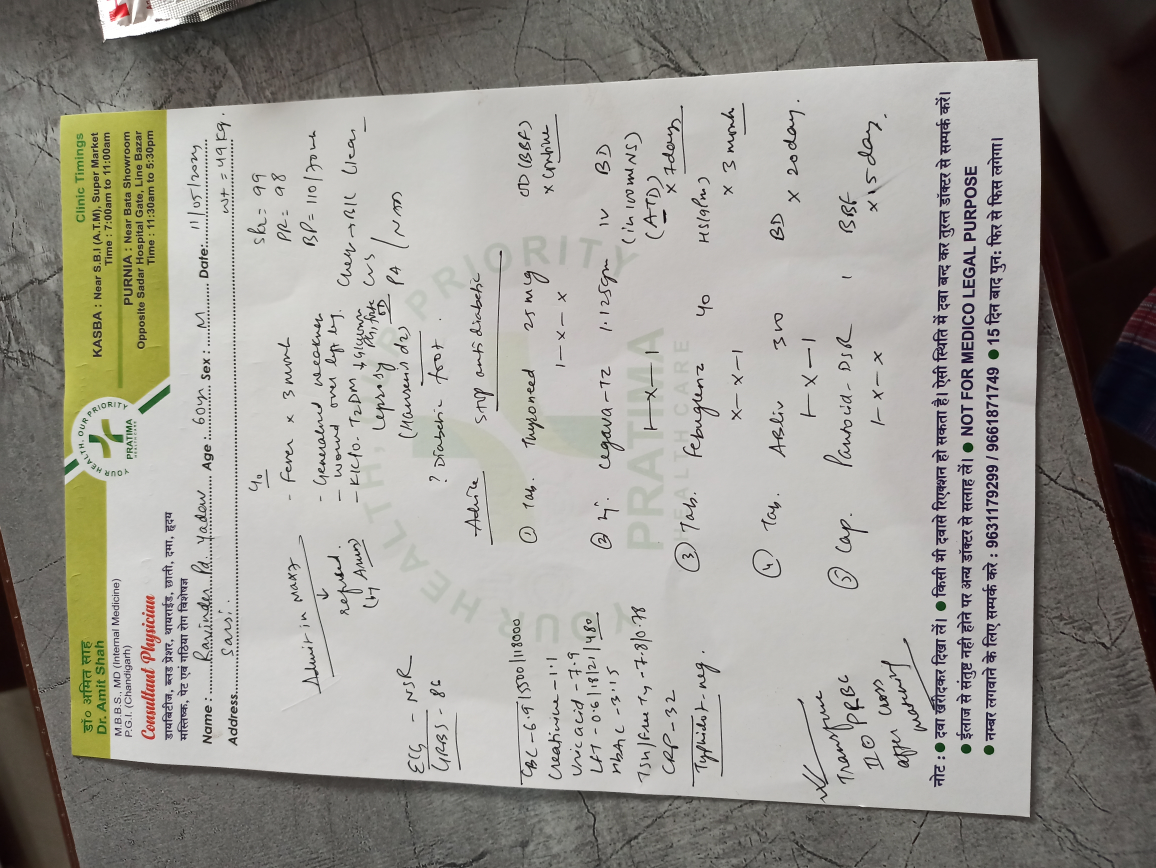 डॉ० अमित साह
Dr. Amit Shah
M.B.B.S., MD (Internal Medicine)
P.G.I. (Chandigarh)
Consultant Physician
डायबिटीज, ब्लड प्रेशर, थायराईड, छाती, दमा, हृदय
मस्तिष्क, पेट एवं गठिया रोग विशेषज्ञ
YOUR HEALTH, OUR PRIORITY
PRATIMA
HEALTH CARE
Clinic Timings
KASBA : Near S.B.I (A.T.M), Super Market
Time : 7:00am to 11:00am
PURNIA : Near Bata Showroom
Opposite Sadar Hospital Gate, Line Bazar
Time : 11:30am to 5:30pm
Name : Ravinder Pd. Yadav Age : 60yr Sex : M Date:
Address Sarsi wt = 49 kg.
c/o
- Fever x 3 month
- Generalised weakness
- wound over left leg.
- K/c/o. T2DM
Leprosy
(Hansen's dz)
? Diabetic foot.
PR = 98
BP = 110/70
Chest → B/L clear
CVS
PA / NAD
Admit in
↓
refused.
ECG - NSR
GRBS - 86
CBC - 6.9/15500/118000
Creatinine - 1.1
Uric acid - 7.9
LFT - 0.6/18/21/480
HbA1c - 3.15
TSH/Free T4 - 7.8/0.78
CRP - 32
Typhidot neg.
Transfuse
II U PRBC
after cross
matching
Advice
STOP anti diabetic
① Tab. Thyroneed 25 mcg OD (BBF)
1 - x - x x continue
② Inj. 1.125gm IV BD
(in 100ml NS)
1 - x - 1 x 7 days
③ Tab. 40 HS (9pm)
x - x - 1 x 3 month
④ Tab. Asliv 300 BD
1 - x - 1 x 20 day.
⑤ Cap. Pantocid-DSR 1 BBF
1 - x - x x 15 day.
नोट : ● दवा खरीदकर दिखा लें। ● किसी भी दवासे रिएक्शन हो सकता है। ऐसी स्थिति में दवा बन्द कर तुरन्त डॉक्टर से सम्पर्क करें।
● ईलाज से सतुष्ट नही होने पर अन्य डॉक्टर से सलाह लें। ● NOT FOR MEDICO LEGAL PURPOSE
● नम्बर लगवाने के लिए सम्पर्क करे : 9631179299 / 9661871749 ● 15 दिन बाद पुन: फिर से फिस लगेगा।